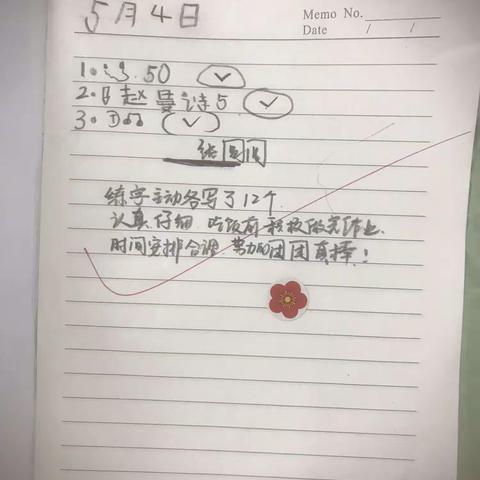 5月4日
Memo No.
Date / /
1. 50
2. 日赵曼诗5
3. 口
练字主动各写了12个.
认真仔细.吃饭前积极做完作业.
时间安排合理.努力的团团真棒!